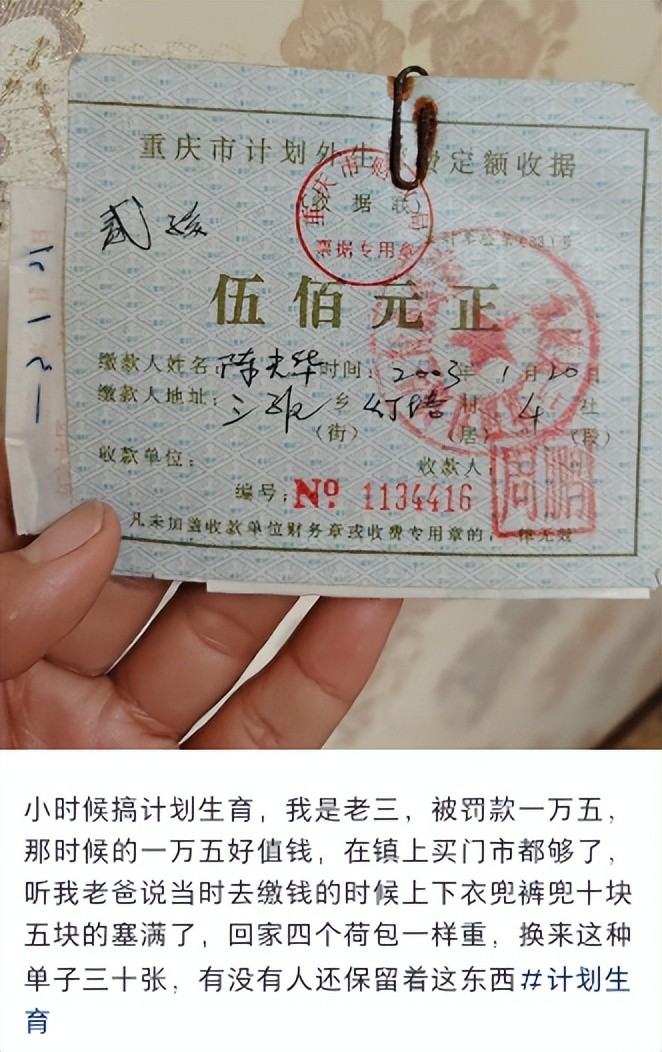 重庆市计划外生 费定额收据
(收据联)
重庆市财
票据专用章
伍佰元正
缴款人姓名:陈光华 时间:2003年1月20日
缴款人地址: 乡 村 4 社
(街) (居) (段)
收款单位: 收款人
周鹏
编号:No 1134416
凡未加盖收款单位财务章或收费专用章的,一律无效
小时候搞计划生育,我是老三,被罚款一万五,
那时候的一万五好值钱,在镇上买门市都够了,
听我老爸说当时去缴钱的时候上下衣兜裤兜十块
五块的塞满了,回家四个荷包一样重,换来这种
单子三十张,有没有人还保留着这东西#计划生
育